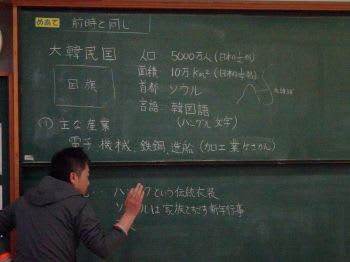 めあて 前時と同じ
大韓民国
国旗
人口 5000万人 (日本の
面積 10万Km² (日本の
首都 ソウル
言語 韓国語
(ハングル文字)
① 主な産業
電子、機械、鉄鋼、造船 (加工業がさかん)
という伝統衣装
は家族とすごす新年行事